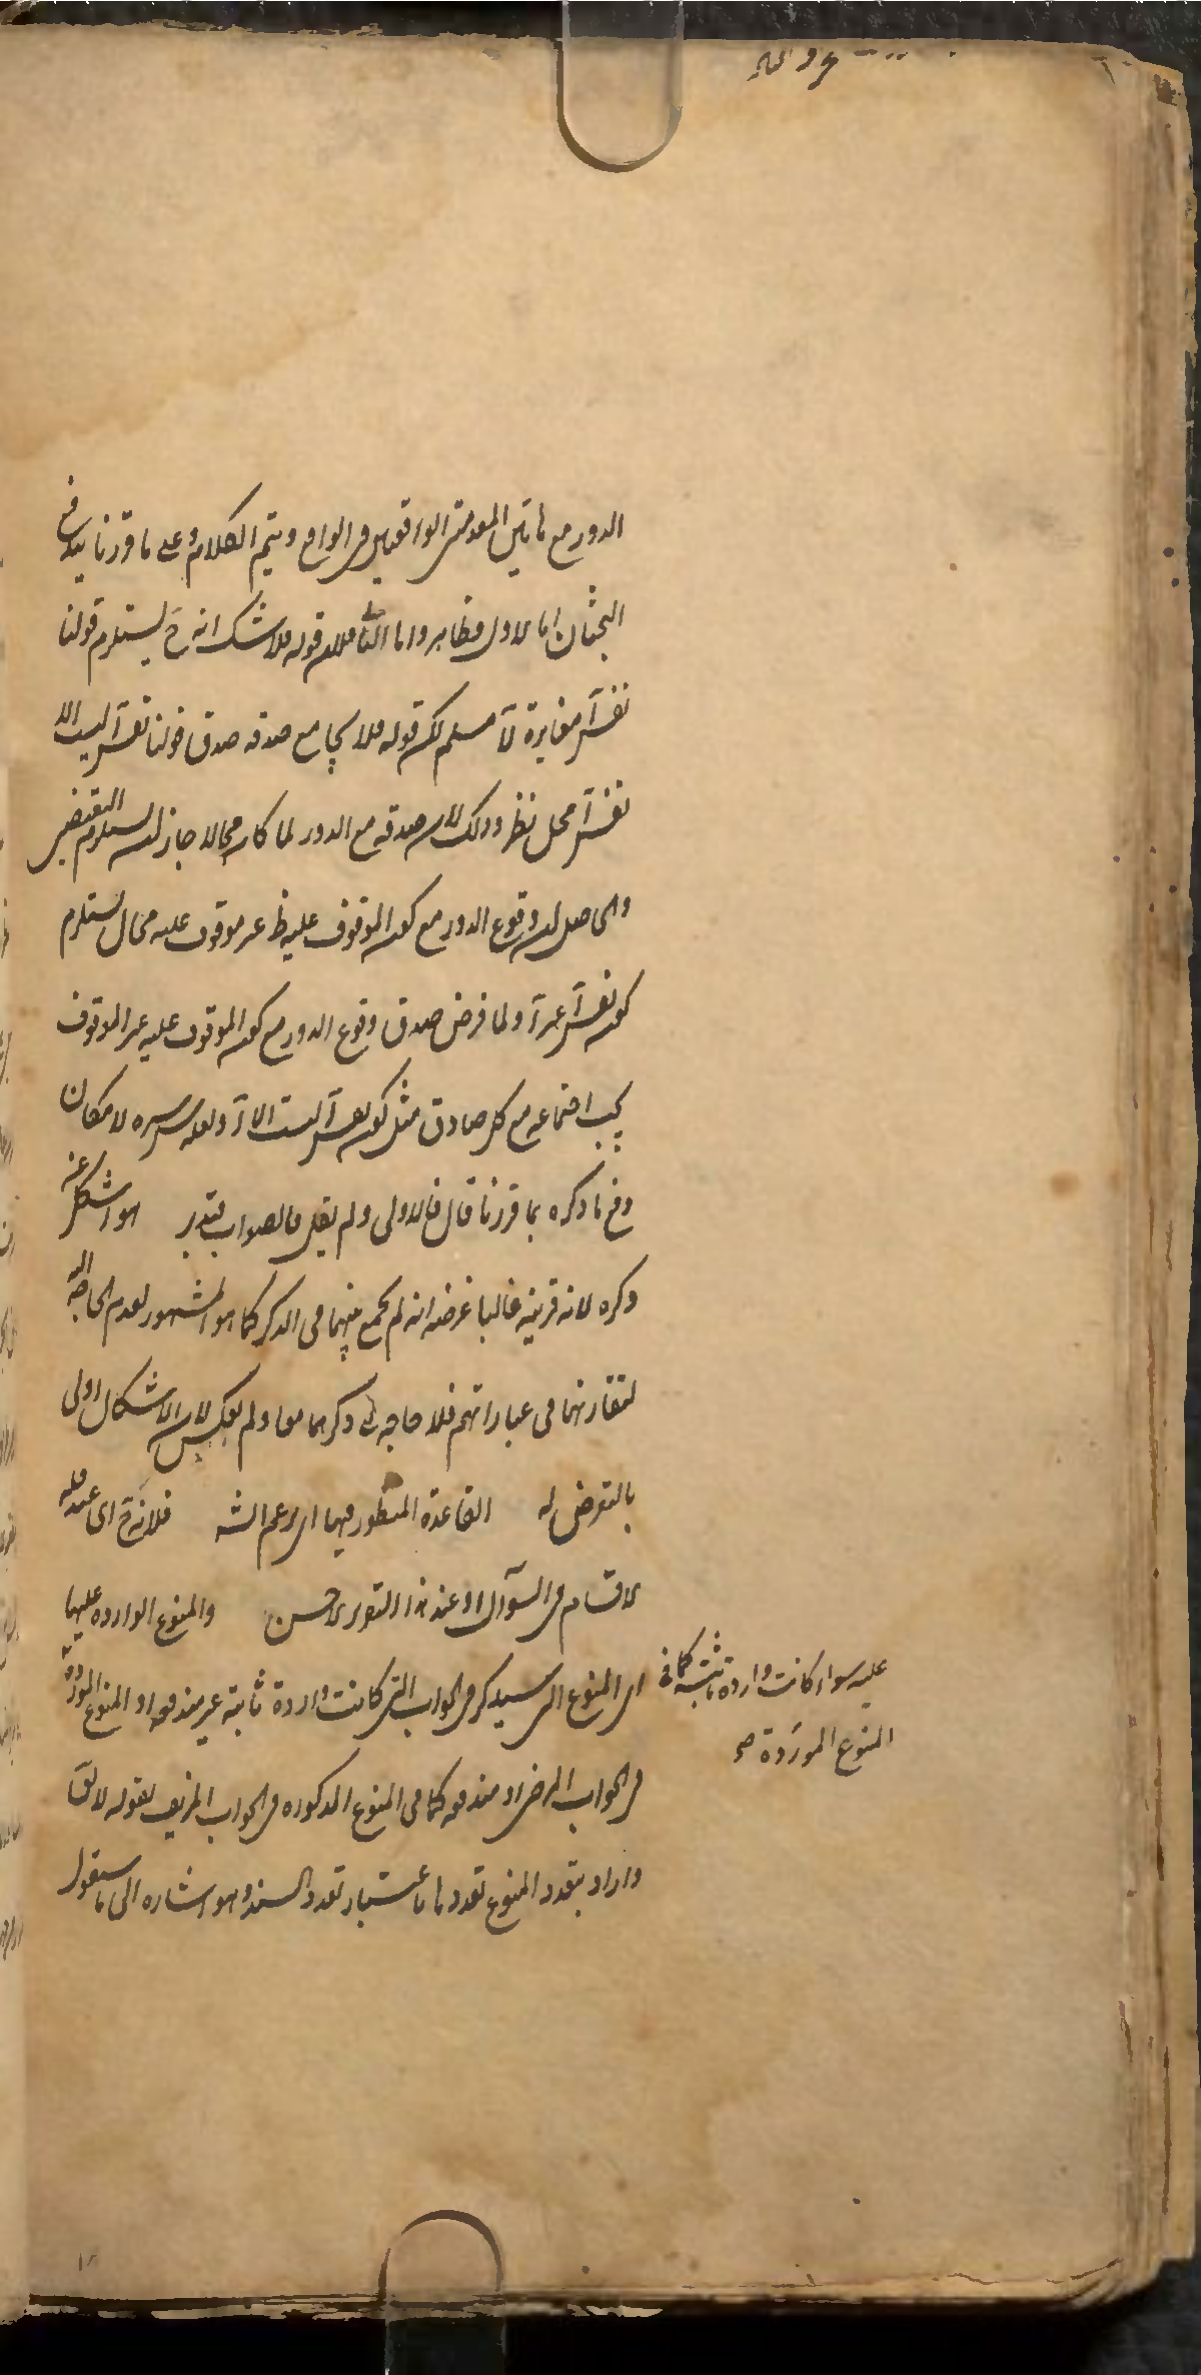 الدور مع هاتين المقدمتين الواقعتين في الواقع ويتم الكلام وعلى ما قررنا يندفع
البحثان اما الاول فظاهر واما الثانى فلان قوله فلا شك انه ح يستلزم قولنا
نفس آ مغايرة لآ مسلم لكن قوله فلا يجامع صدقه صدق قولنا نفس آ ليست الا
نفس آ محل نظر وذلك لان صدقه مع الدور لما كان محالا جاز ان يستلزم النقيض
والحاصل ان وقوع الدور مع كون الموقوف عليه ظ غير موقوف عليه محال يستلزم
كون نفس آ غير آ ولما فرض صدق وقوع الدور مع كون الموقوف عليه غير الموقوف
يجب اجتماعه مع كل صادق مثل كون نفس آ ليست الا آ ولعله لامكان
دفع ما ذكره بما قررنا قال فالاولى ولم يقل فالصواب فتدبر هو اشكل عنه
ذكره لانه قرينه غالبا غرضه انه لم يجمع بينهما فى الذكر كما هو المشهور لعدم الحاجة اليه
لتقارنهما فى عباراتهم فلا حاجة الى ذكرهما معا ولم يعكس لان الاشكال اولى
بالتعرض له القاعدة المنظور فيها اى بزعم الشه فلانه ح اى عند
لاقسام فى السؤال او عند هذا التقرير لاحسن والمنوع الواردة عليها
اى المنوع التى سيذكر فى الجواب التى كانت واردة ثابتة غير مندفعة او المنوع الموردة
فى الجواب المرضى او مندفعة كما فى المنوع المذكورة فى الجواب المزيف بقوله لا يق
واراد بتعدد المنوع تعددها باعتبار تعدد السند وهو اشارة الى ما سيقول
عليه سواء كانت واردة ثابتة كما فى
المنوع الموردة صح